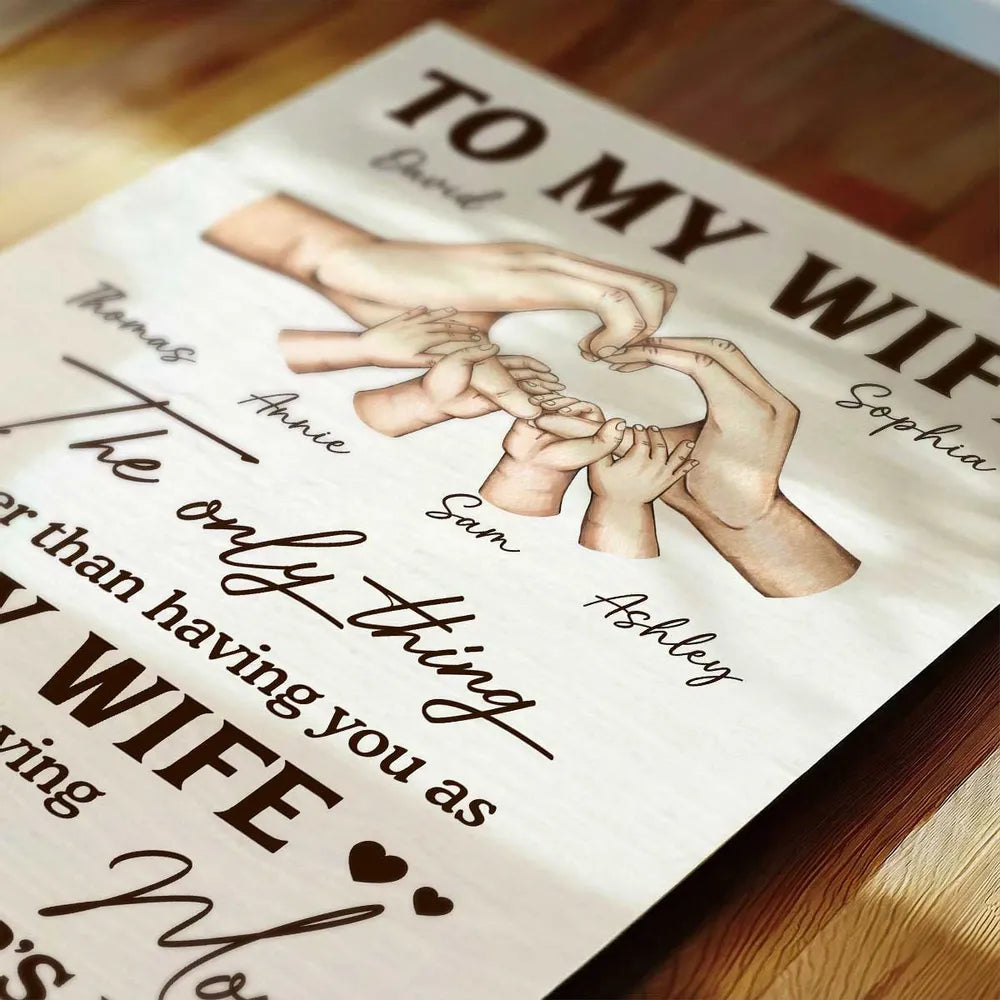 TO MY WIF
David
Sophia
Thomas
Annie
Sam
Ashley
The only thing
er than having you as
WIFE
ving
Mo
's